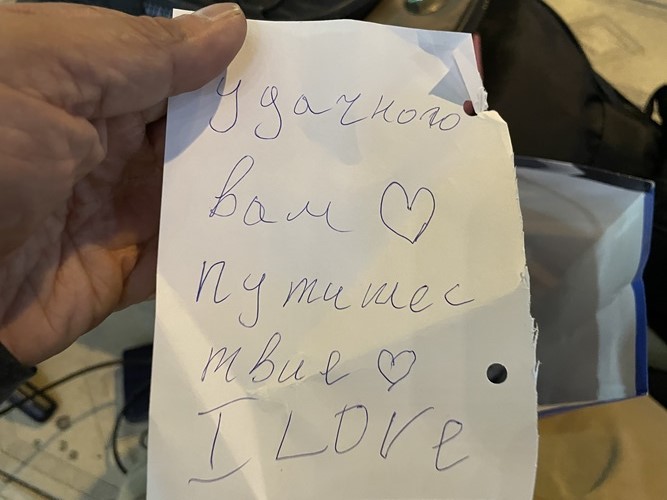 Удачного
вам ♡
путишес
твие ♡
I LOVe